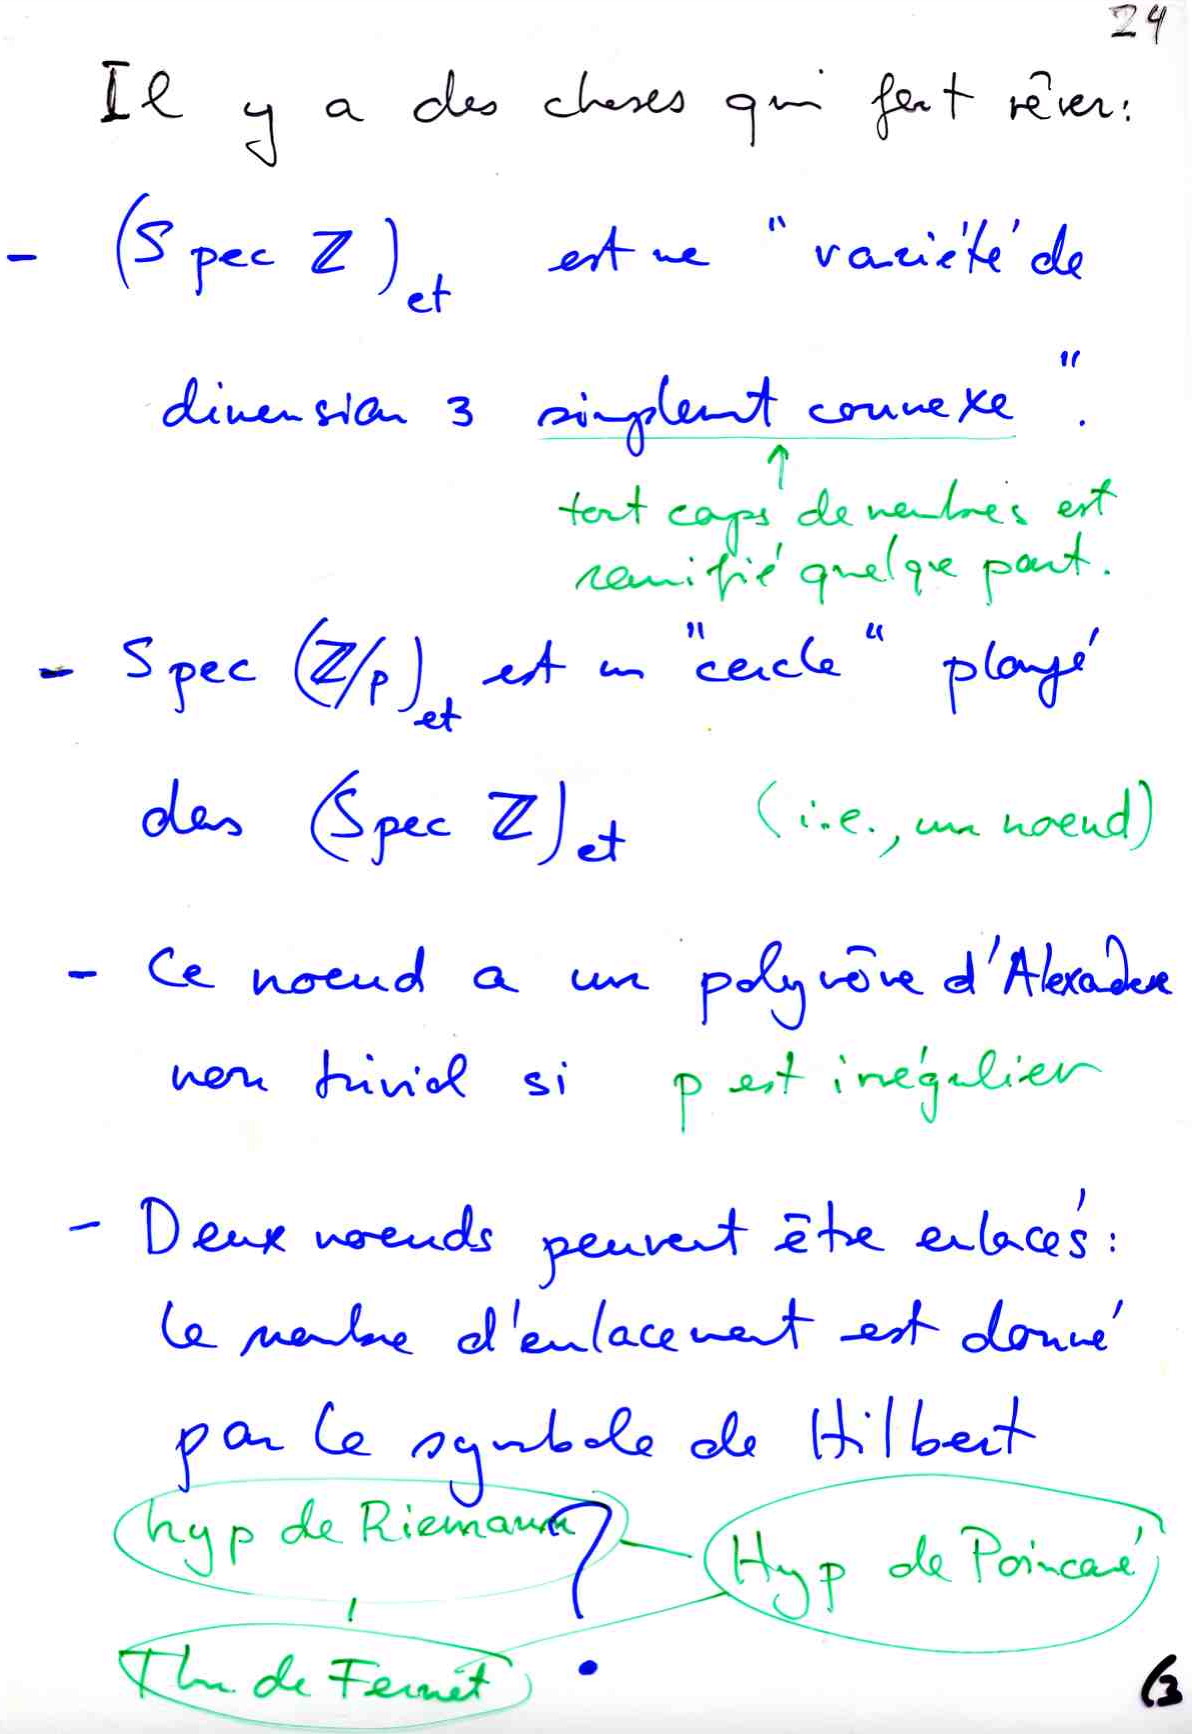 24
Il y a des choses qui font rêver:
- (Spec ℤ)et est une "variété de
dimension 3 simplement connexe".
↑
tout corps de nombres est
ramifié quelque part.
- Spec (ℤ/p)et est un "cercle" plongé
dans (Spec ℤ)et (i.e., un noeud)
- Ce noeud a un polynôme d'Alexandre
non trivial si p est irrégulier
- Deux noeuds peuvent être enlacés:
le nombre d'enlacement est donné
par le symbole de Hilbert
hyp de Riemann ?
Hyp de Poincaré
Thm de Fermat